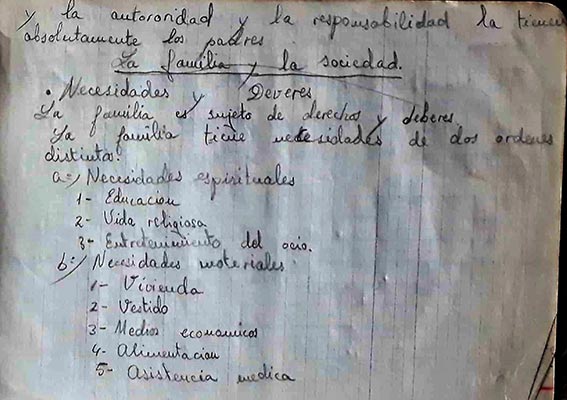 y la autoronidad y la responsabilidad la tienen
absolutamente los padres
La familia y la sociedad.
• Necesidades y Deveres
La familia es sujeto de derechos y deberes
La familia tiene necesidades de dos ordenes
distintas:
a=) Necesidades espirituales
1- Educacion
2- Vida religiosa
3- Entretenimiento del ocio.
b:) Necesidades materiales
1- Vivienda
2- Vestido
3- Medios economicos
4- Alimentacion
5- Asistencia medica